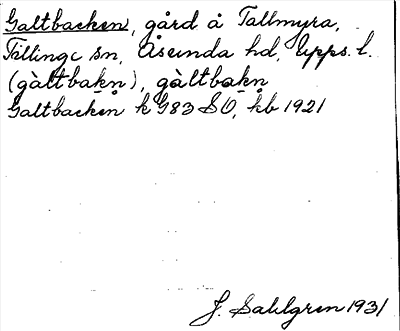 Galtbacken, gård å Tallmyra,
Tillinge sn, Åsunda hd, Upps. l.
(gàltbakn), gàltbakn
Galtbacken k G83 SO, kb 1921
J. Sahlgren 1931